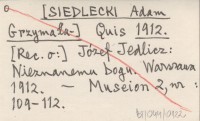 [SIEDLECKI Adam
Grzymała-] Quis 1912.
[Rec. o:] Józef Jedlicz:
Nieznanemu bogu. Warszawa
1912. — Museion 2, nr :
109-112.